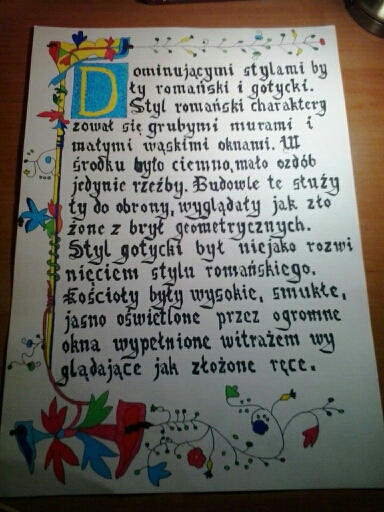 Dominującymi stylami by
ły romański i gotycki.
Styl romański charaktery
zował się grubymi murami i
małymi wąskimi oknami. W
środku było ciemno, mało ozdób
jedynie rzeźby. Budowle te służy
ły do obrony, wyglądały jak zło
żone z brył geometrycznych.
Styl gotycki był niejako rozwi
nięciem stylu romańskiego.
Kościoły były wysokie, smukłe,
jasno oświetlone przez ogromne
okna wypełnione witrażem wy
glądające jak złożone ręce.